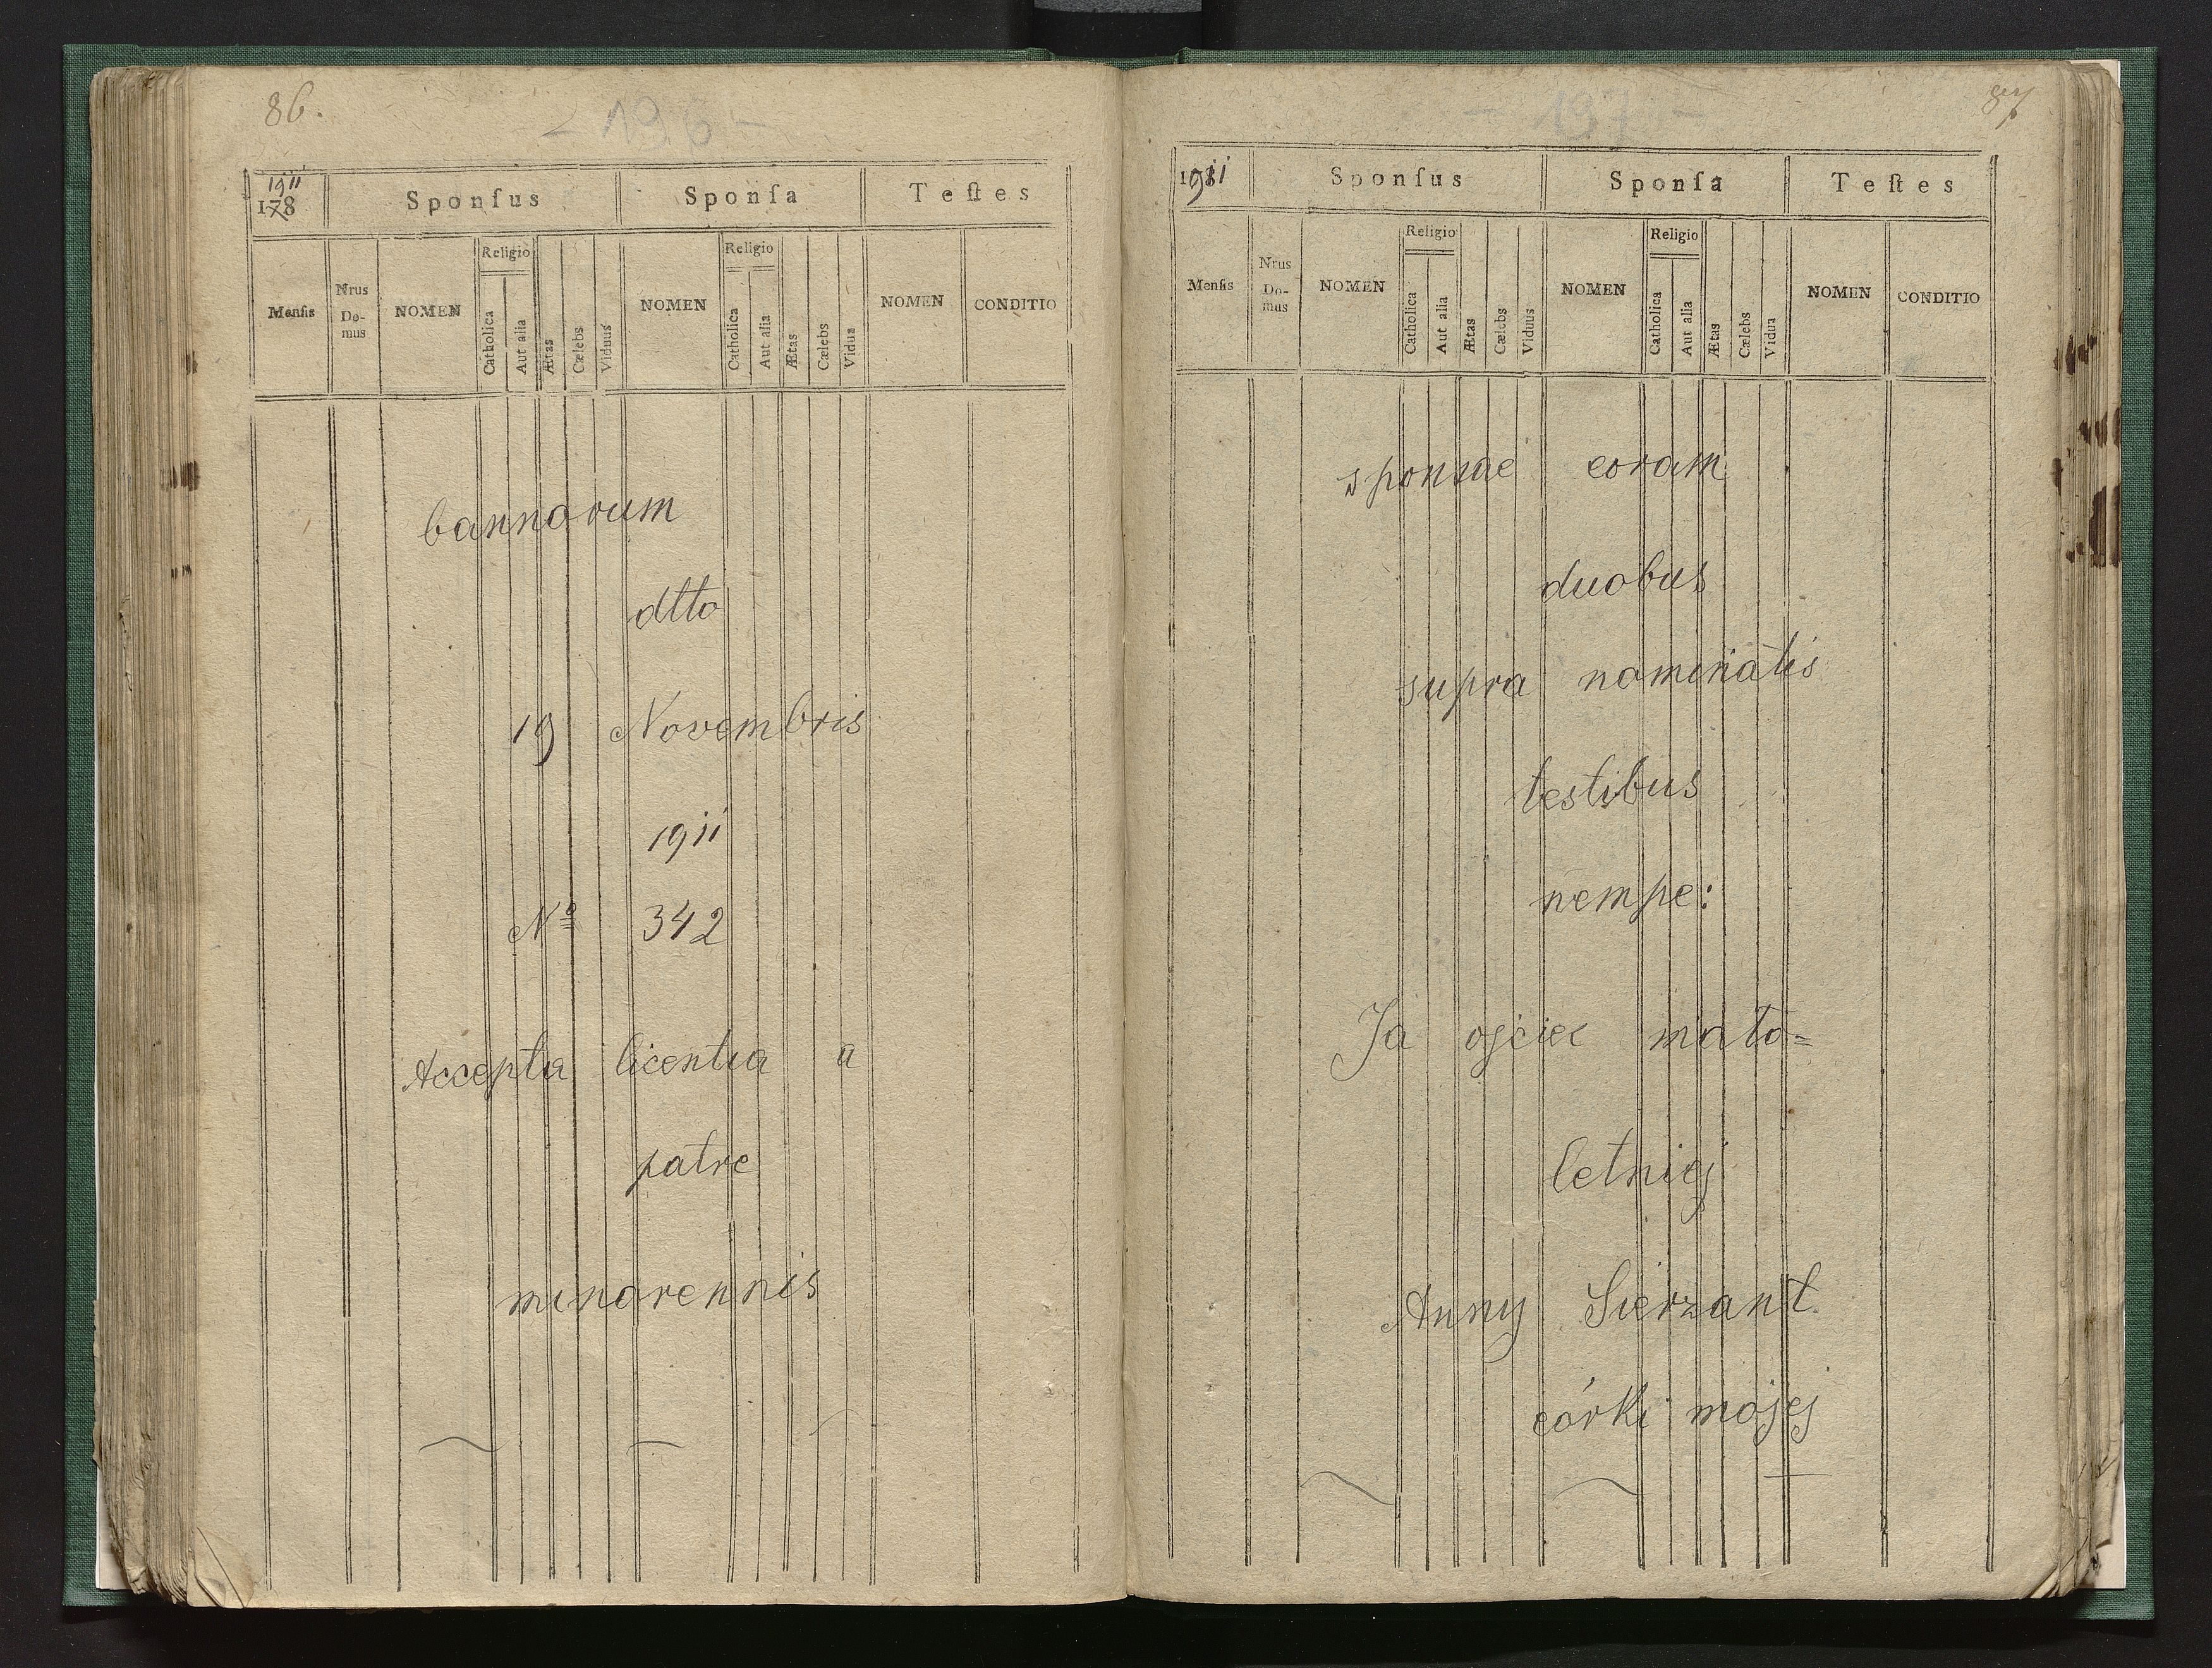 86.
- 196 -
1911
178
Sponſus
Sponſa
Teſtes
Menſis
Nrus Do-mus
NOMEN
Religio
Catholica
Aut alia
Ætas
Cælebs
Viduus
NOMEN
Religio
Catholica
Aut alia
Ætas
Cælebs
Vidua
NOMEN
CONDITIO
bannorum
dtto
19 Novembris
1911
Nº 342
Accepta licentia a
patre
minorennis
87
- 197 -
1911
Sponſus
Sponſa
Teſtes
Menſis
Nrus Do-mus
NOMEN
Religio
Catholica
Aut alia
Ætas
Cælebs
Viduus
NOMEN
Religio
Catholica
Aut alia
Ætas
Cælebs
Vidua
NOMEN
CONDITIO
sponsae coram
duobus
supra nominatis
testibus
nempe:
Ja ojciec mało=
letniej
Anny Sierzant
córki mojej